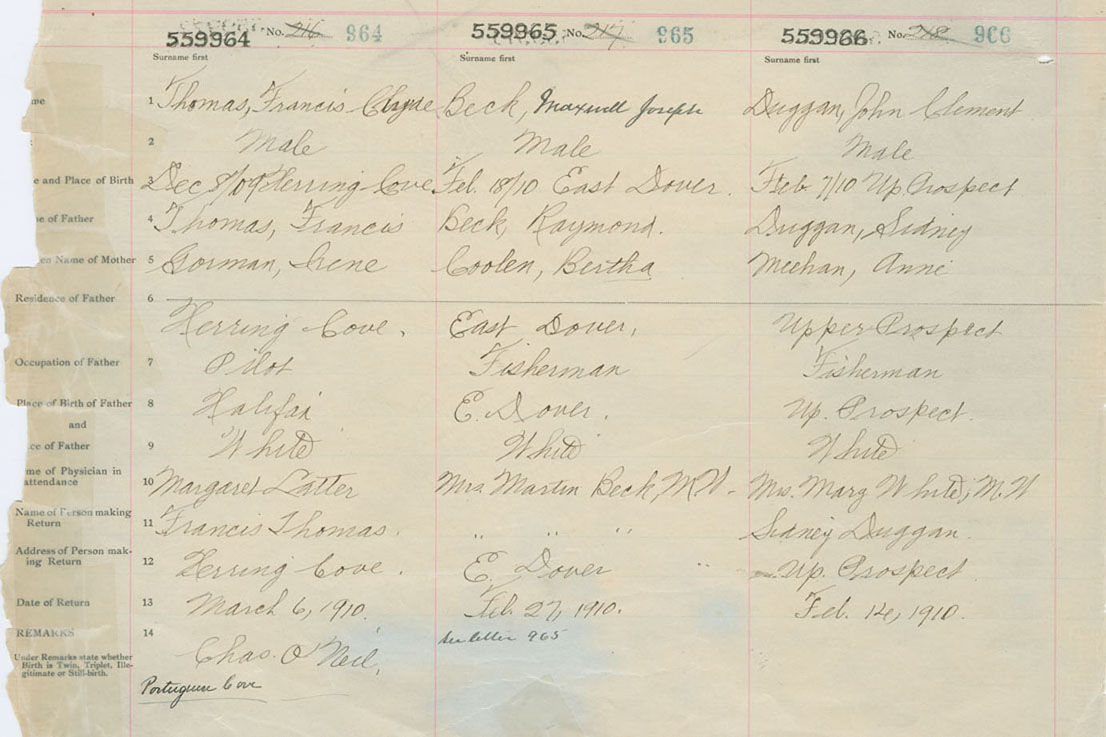 559964 No. 216 964 559965 No. 217 965 559966 No. 218 966
Surname first Surname first Surname first
me 1 Thomas, Francis Clyde Beck, Maxwell Joseph Duggan, John Clement
2 Male Male Male
e and Place of Birth 3 Dec 8/09 Herring Cove Feb. 18/10 East Dover. Feb. 7/10 Up Prospect
ne of Father 4 Thomas, Francis Beck, Raymond. Duggan, Sidney
en Name of Mother 5 Gorman, Irene Coolen, Bertha Meehan, Annie
Residence of Father 6 Herring Cove. East Dover, Upper Prospect
Occupation of Father 7 Pilot Fisherman Fisherman
Place of Birth of Father 8 Halifax E. Dover. Up. Prospect.
and
ce of Father 9 White White White
me of Physician in
attendance 10 Margaret Latter Mrs. Martin Beck, M.W. Mrs. Mary White, M.W
Name of Person making
Return 11 Francis Thomas. " " " Sidney Duggan.
Address of Person mak-
ing Return 12 Herring Cove. E. Dover " Up. Prospect
Date of Return 13 March 6, 1910. Feb. 27, 1910. Feb. 14, 1910.
REMARKS 14 Chas. O'Neil, see letter 965
Under Remarks state whether
Birth is Twin, Triplet, Ille-
gitimate or Still-birth.
Portuguese Cove